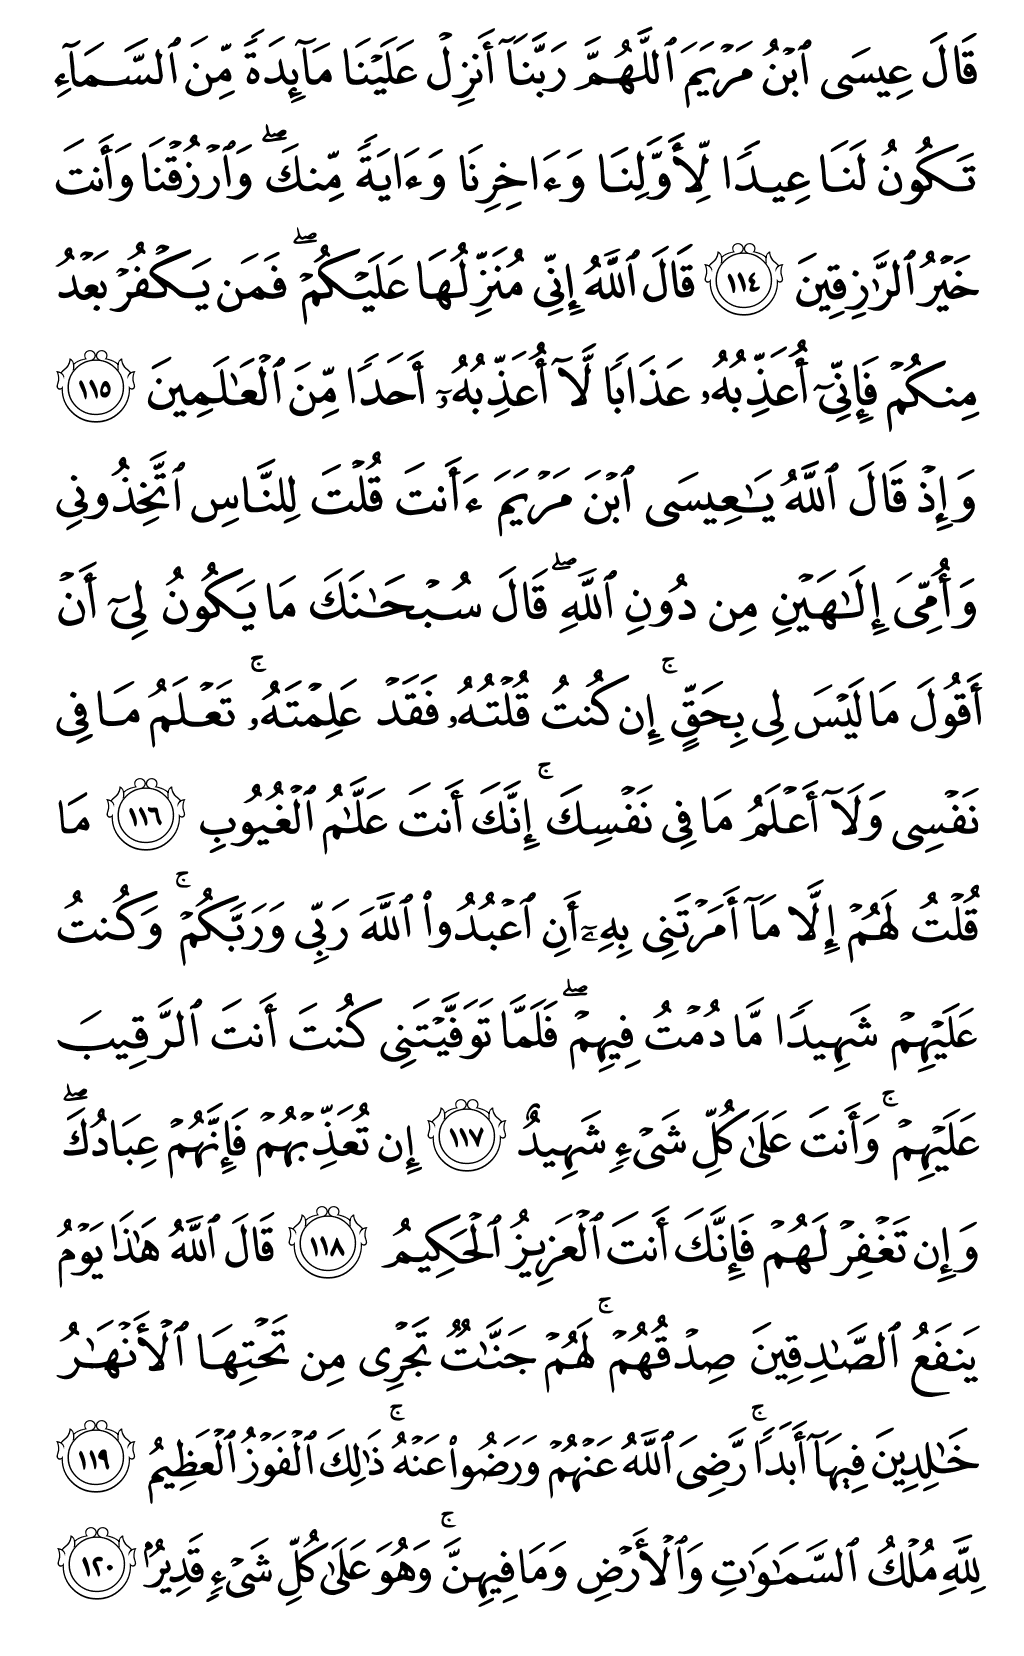 قَالَ عِيسَى ٱبۡنُ مَرۡيَمَ ٱللَّهُمَّ رَبَّنَآ أَنزِلۡ عَلَيۡنَا مَآئِدَةٗ مِّنَ ٱلسَّمَآءِ
تَكُونُ لَنَا عِيدٗا لِّأَوَّلِنَا وَءَاخِرِنَا وَءَايَةٗ مِّنكَۖ وَٱرۡزُقۡنَا وَأَنتَ
خَيۡرُ ٱلرَّٰزِقِينَ ١١٤ قَالَ ٱللَّهُ إِنِّي مُنَزِّلُهَا عَلَيۡكُمۡۖ فَمَن يَكۡفُرۡ بَعۡدُ
مِنكُمۡ فَإِنِّيٓ أُعَذِّبُهُۥ عَذَابٗا لَّآ أُعَذِّبُهُۥٓ أَحَدٗا مِّنَ ٱلۡعَٰلَمِينَ ١١٥
وَإِذۡ قَالَ ٱللَّهُ يَٰعِيسَى ٱبۡنَ مَرۡيَمَ ءَأَنتَ قُلۡتَ لِلنَّاسِ ٱتَّخِذُونِي
وَأُمِّيَ إِلَٰهَيۡنِ مِن دُونِ ٱللَّهِۖ قَالَ سُبۡحَٰنَكَ مَا يَكُونُ لِيٓ أَنۡ
أَقُولَ مَا لَيۡسَ لِي بِحَقٍّۚ إِن كُنتُ قُلۡتُهُۥ فَقَدۡ عَلِمۡتَهُۥۚ تَعۡلَمُ مَا فِي
نَفۡسِي وَلَآ أَعۡلَمُ مَا فِي نَفۡسِكَۚ إِنَّكَ أَنتَ عَلَّٰمُ ٱلۡغُيُوبِ ١١٦ مَا
قُلۡتُ لَهُمۡ إِلَّا مَآ أَمَرۡتَنِي بِهِۦٓ أَنِ ٱعۡبُدُواْ ٱللَّهَ رَبِّي وَرَبَّكُمۡۚ وَكُنتُ
عَلَيۡهِمۡ شَهِيدٗا مَّا دُمۡتُ فِيهِمۡۖ فَلَمَّا تَوَفَّيۡتَنِي كُنتَ أَنتَ ٱلرَّقِيبَ
عَلَيۡهِمۡۚ وَأَنتَ عَلَىٰ كُلِّ شَيۡءٖ شَهِيدٌ ١١٧ إِن تُعَذِّبۡهُمۡ فَإِنَّهُمۡ عِبَادُكَۖ
وَإِن تَغۡفِرۡ لَهُمۡ فَإِنَّكَ أَنتَ ٱلۡعَزِيزُ ٱلۡحَكِيمُ ١١٨ قَالَ ٱللَّهُ هَٰذَا يَوۡمُ
يَنفَعُ ٱلصَّٰدِقِينَ صِدۡقُهُمۡۚ لَهُمۡ جَنَّٰتٞ تَجۡرِي مِن تَحۡتِهَا ٱلۡأَنۡهَٰرُ
خَٰلِدِينَ فِيهَآ أَبَدٗاۚ رَّضِيَ ٱللَّهُ عَنۡهُمۡ وَرَضُواْ عَنۡهُۚ ذَٰلِكَ ٱلۡفَوۡزُ ٱلۡعَظِيمُ ١١٩
لِلَّهِ مُلۡكُ ٱلسَّمَٰوَٰتِ وَٱلۡأَرۡضِ وَمَا فِيهِنَّۚ وَهُوَ عَلَىٰ كُلِّ شَيۡءٖ قَدِيرُۢ ١٢٠